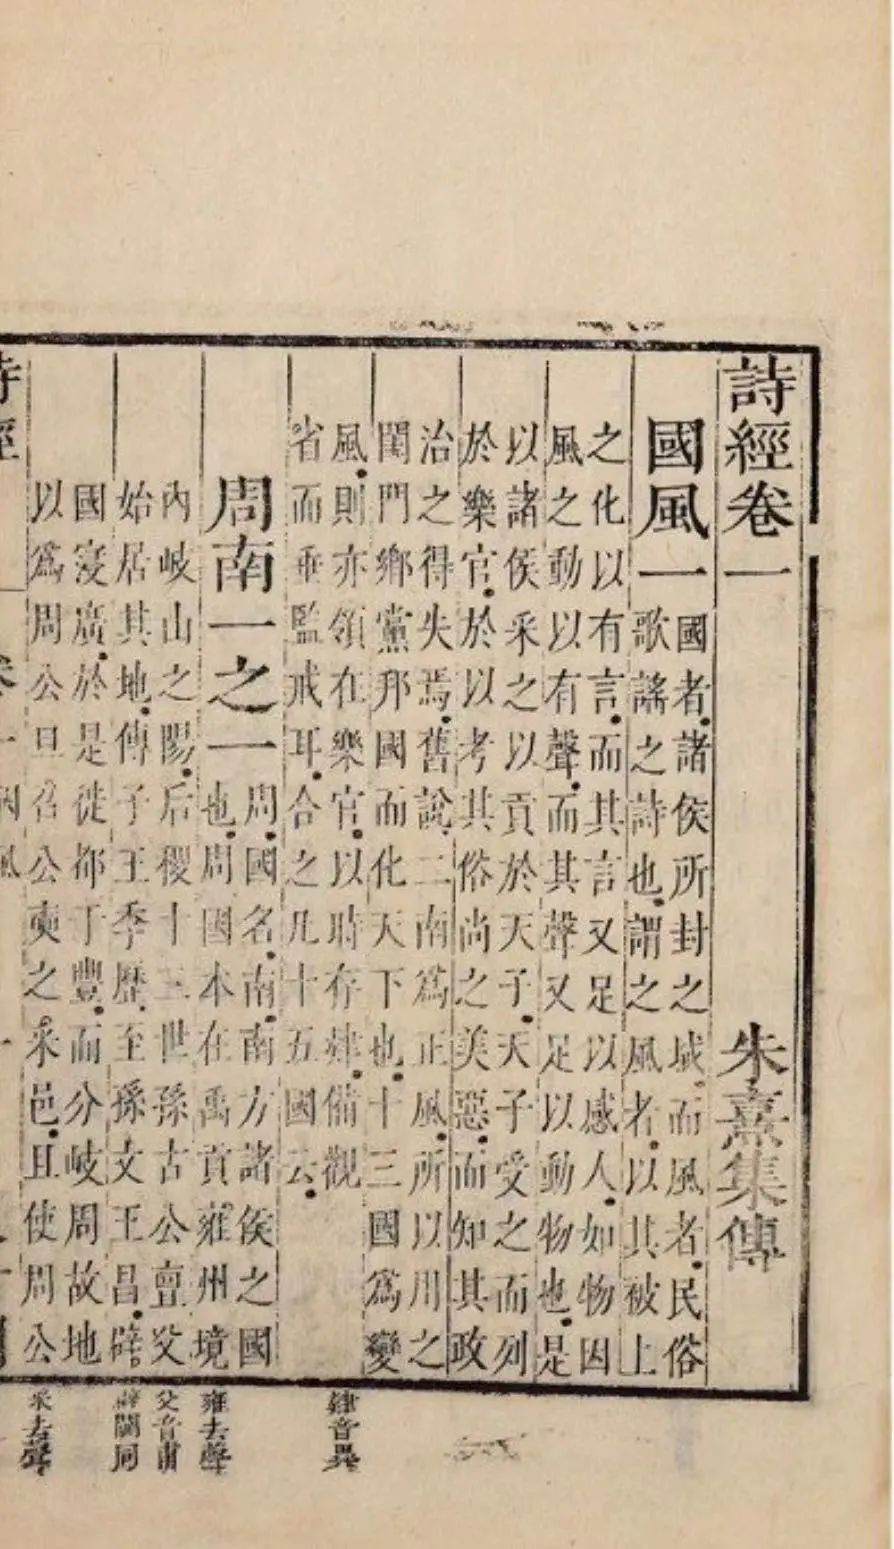 詩經卷一　朱熹集傳
國風一
國者。諸侯所封之域。而風者。民俗
歌謠之詩也。謂之風者。以其被上
之化以有言。而其言又足以感人。如物因
風之動以有聲。而其聲又足以動物也。是
以諸侯采之以貢於天子。天子受之而列
於樂官。於以考其俗尚之美惡。而知其政
治之得失焉。舊說。二南爲正風。所以用之
閨門鄉黨邦國而化天下也。十三國爲變
風。則亦領在樂官。以時存肄。備觀
省而垂監戒耳。合之凡十五國云。
周南一之一
周。國名。南。南方諸侯之國
也。周國本在禹貢雍州境
內岐山之陽。后稷十三世孫古公亶父
始居其地。傳子王季歷。至孫文王昌。辟
國寖廣。於是徙都于豐。而分岐周故地
以爲周公旦召公奭之采邑。且使周公
肄音異
雍去聲
父音甫
辟闢同
采去聲